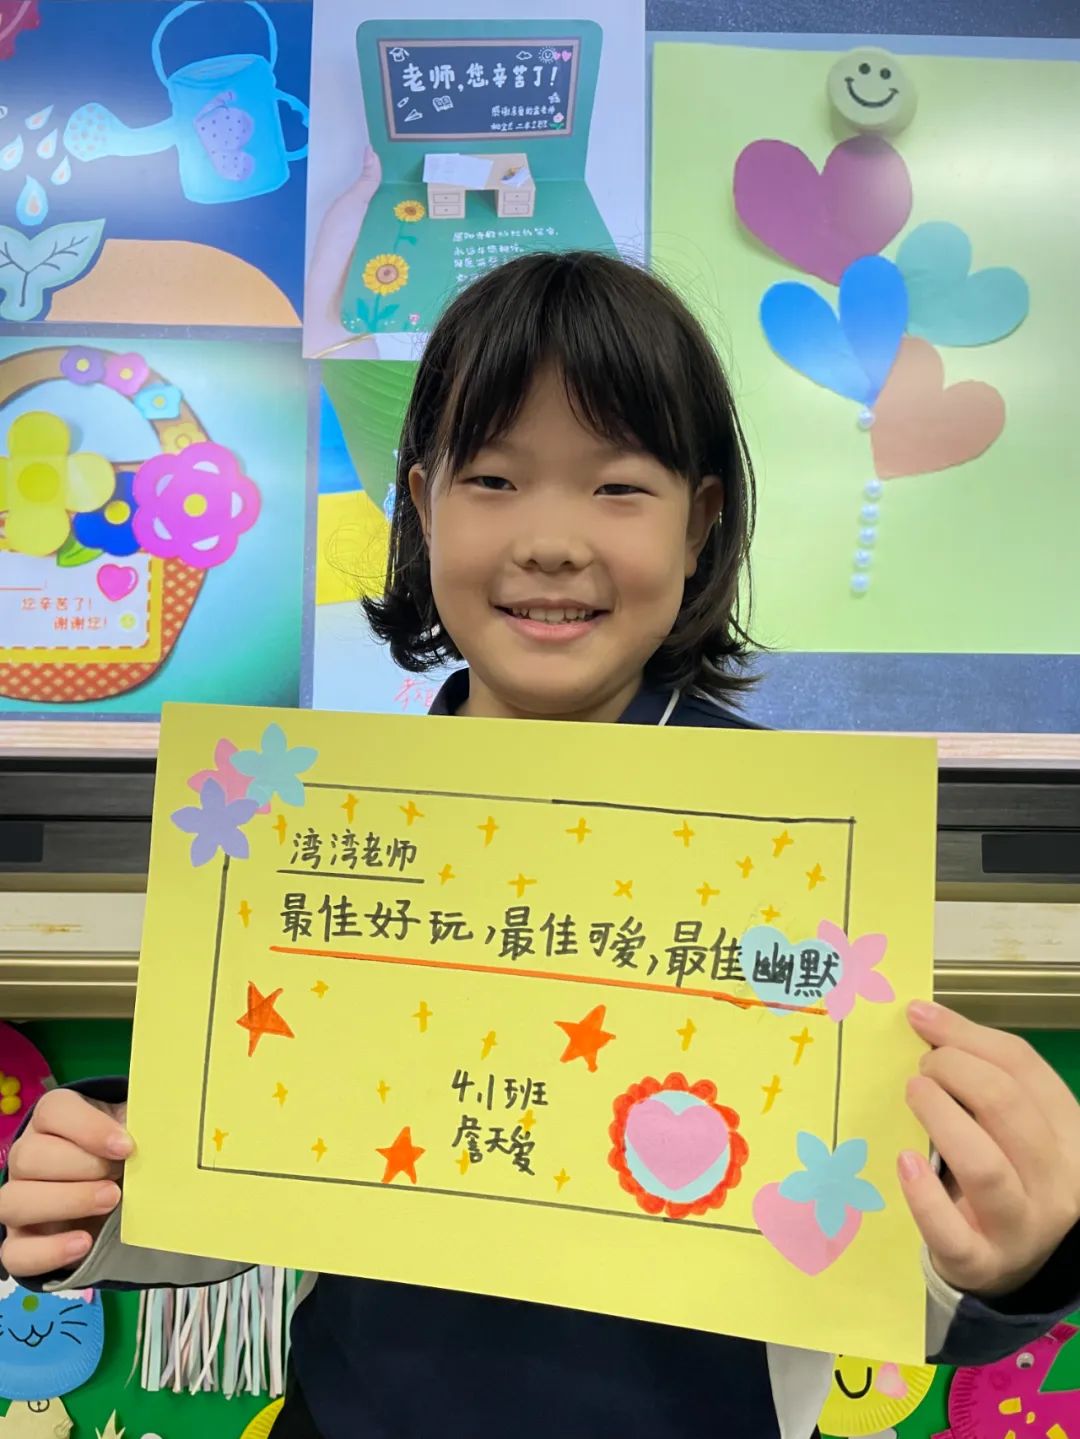 老师,您辛苦了!
您辛苦了!
谢谢您!
湾湾老师
最佳好玩,最佳可爱,最佳幽默
4.1班
詹天爱